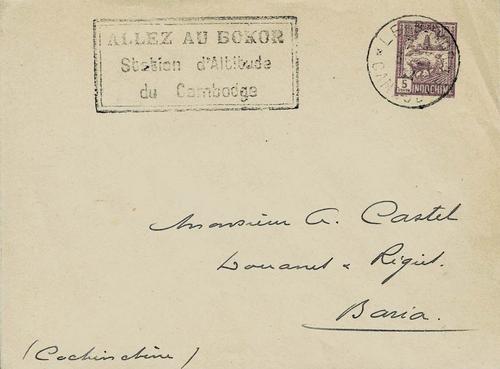 ALLEZ AU BOKOR
Station d'Altitude
du Cambodge
5
INDOCHINE
Monsieur A. Castel
Douanes & Régies.
Baria.
(Cochinchine)